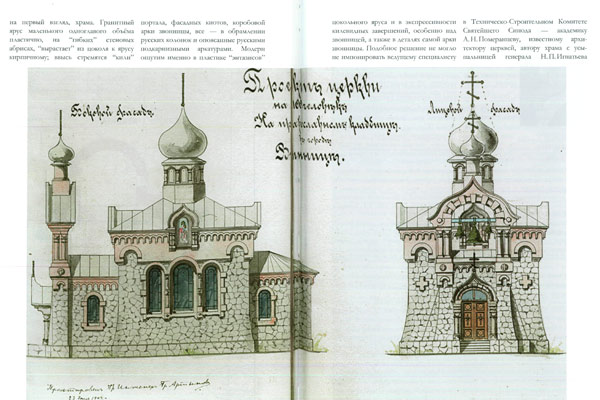 на первый взгляд, храма. Гранитный
ярус маленького одноглавого объёма
пластично, на "гибких" стеновых
абрисах, "вырастает" из цоколя к ярусу
кирпичному; ввысь стремятся "кили"
портала, фасадных киотов, коробовой
арки звонницы, все — в обрамлении
русских колонок и опоясанные русскими
подкарнизными аркатурами. Модерн
ощутим именно в пластике "энтазисов"
цокольного яруса и в экспрессивности
килевидных завершений, особенно над
звонницей, а также в деталях самой арки
звонницы. Подобное решение не могло
не импонировать ведущему специалисту
в Техническо-Строительном Комитете
Святейшего Синода — академику
А.Н.Померанцеву, известному архи-
тектору церквей, автору храма с усы-
пальницей генерала Н.П.Игнатьева
Проектъ церкви
на
На православномъ кладбищѣ
въ городѣ
Винницѣ.
Боковой фасадъ.
Лицевой фасадъ.